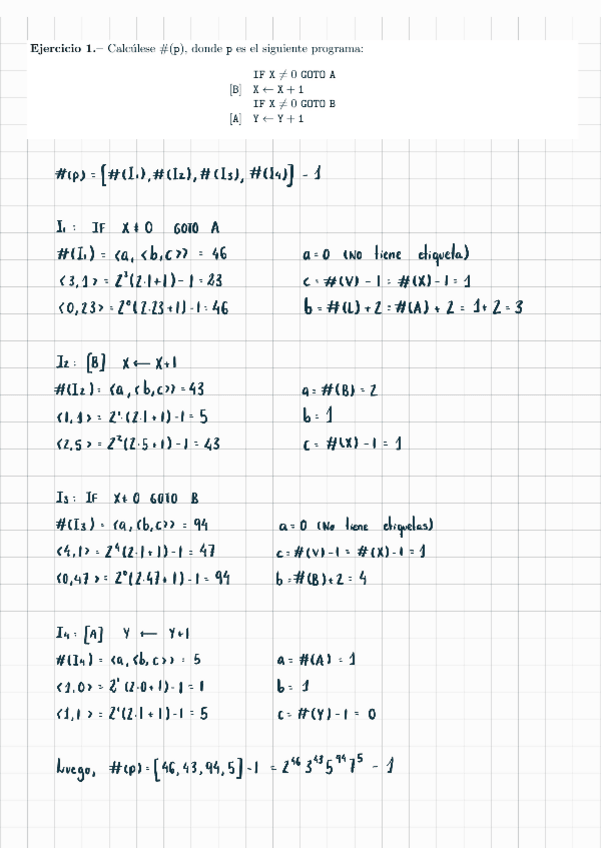 Ejercicio 1.– Calcúlese #(p), donde p es el siguiente programa:
IF X ≠ 0 GOTO A
[B] X ← X + 1
IF X ≠ 0 GOTO B
[A] Y ← Y + 1
#(p) = [#(I₁), #(I₂), #(I₃), #(I₄)] - 1
I₁: IF X ≠ 0 GOTO A
#(I₁) = <a, <b,c>> = 46 a = 0 (No tiene etiqueta)
<3,1> = 2³(2·1+1)-1 = 23 c = #(V) - 1 = #(X) - 1 = 1
<0,23> = 2⁰(2·23+1)-1 = 46 b = #(L) + 2 = #(A) + 2 = 1 + 2 = 3
I₂: [B] X ← X+1
#(I₂) = <a, <b,c>> = 43 a = #(B) = 2
<1,1> = 2¹(2·1+1)-1 = 5 b = 1
<2,5> = 2²(2·5+1)-1 = 43 c = #(X) - 1 = 1
I₃: IF X ≠ 0 GOTO B
#(I₃) = <a, <b,c>> = 94 a = 0 (No tiene etiquetas)
<4,1> = 2⁴(2·1+1)-1 = 47 c = #(V) - 1 = #(X) - 1 = 1
<0,47> = 2⁰(2·47+1)-1 = 94 b = #(B) + 2 = 4
I₄: [A] Y ← Y+1
#(I₄) = <a, <b,c>> = 5 a = #(A) = 1
<1,0> = 2¹(2·0+1)-1 = 1 b = 1
<1,1> = 2¹(2·1+1)-1 = 5 c = #(Y) - 1 = 0
Luego, #(p) = [46, 43, 94, 5] - 1 = 2⁴⁶ 3⁴³ 5⁹⁴ 7⁵ - 1